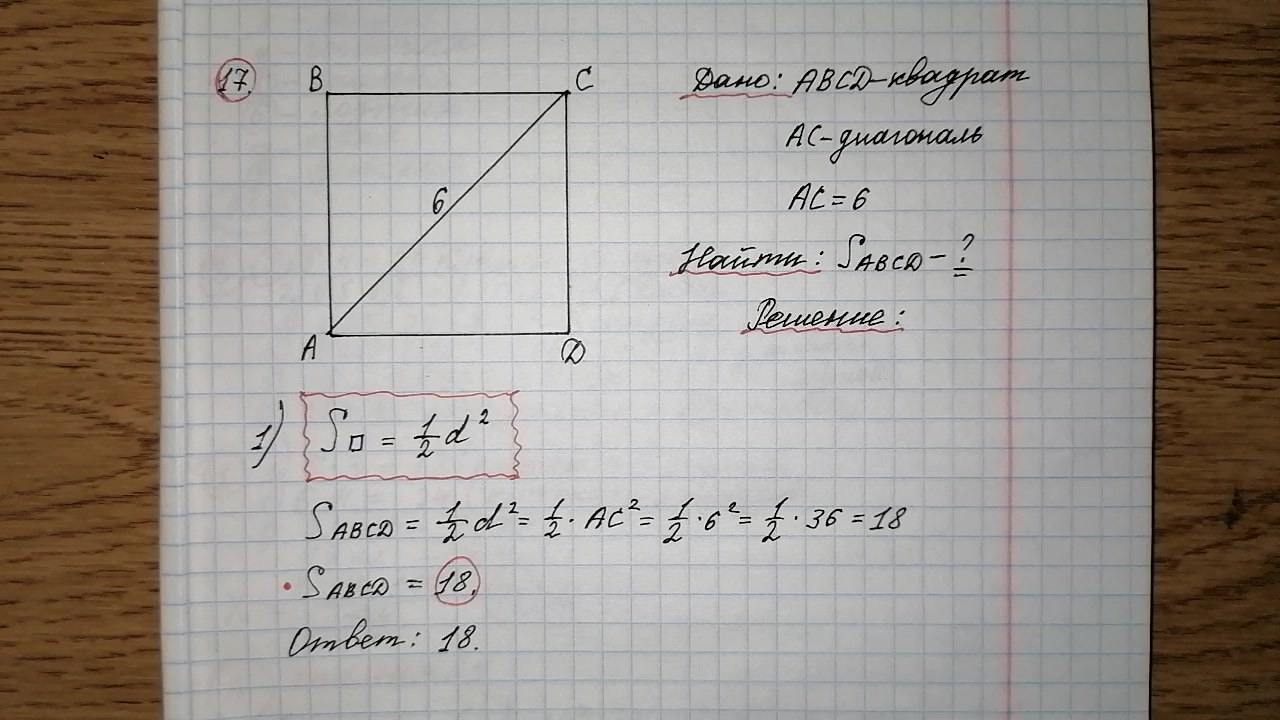 17.
B C
6
A D
Дано: ABCD-квадрат
AC-диагональ
AC = 6
Найти: SABCD - ?
Решение:
1) S□ = 1/2 d²
SABCD = 1/2 d² = 1/2 · AC² = 1/2 · 6² = 1/2 · 36 = 18
• SABCD = 18.
Ответ: 18.